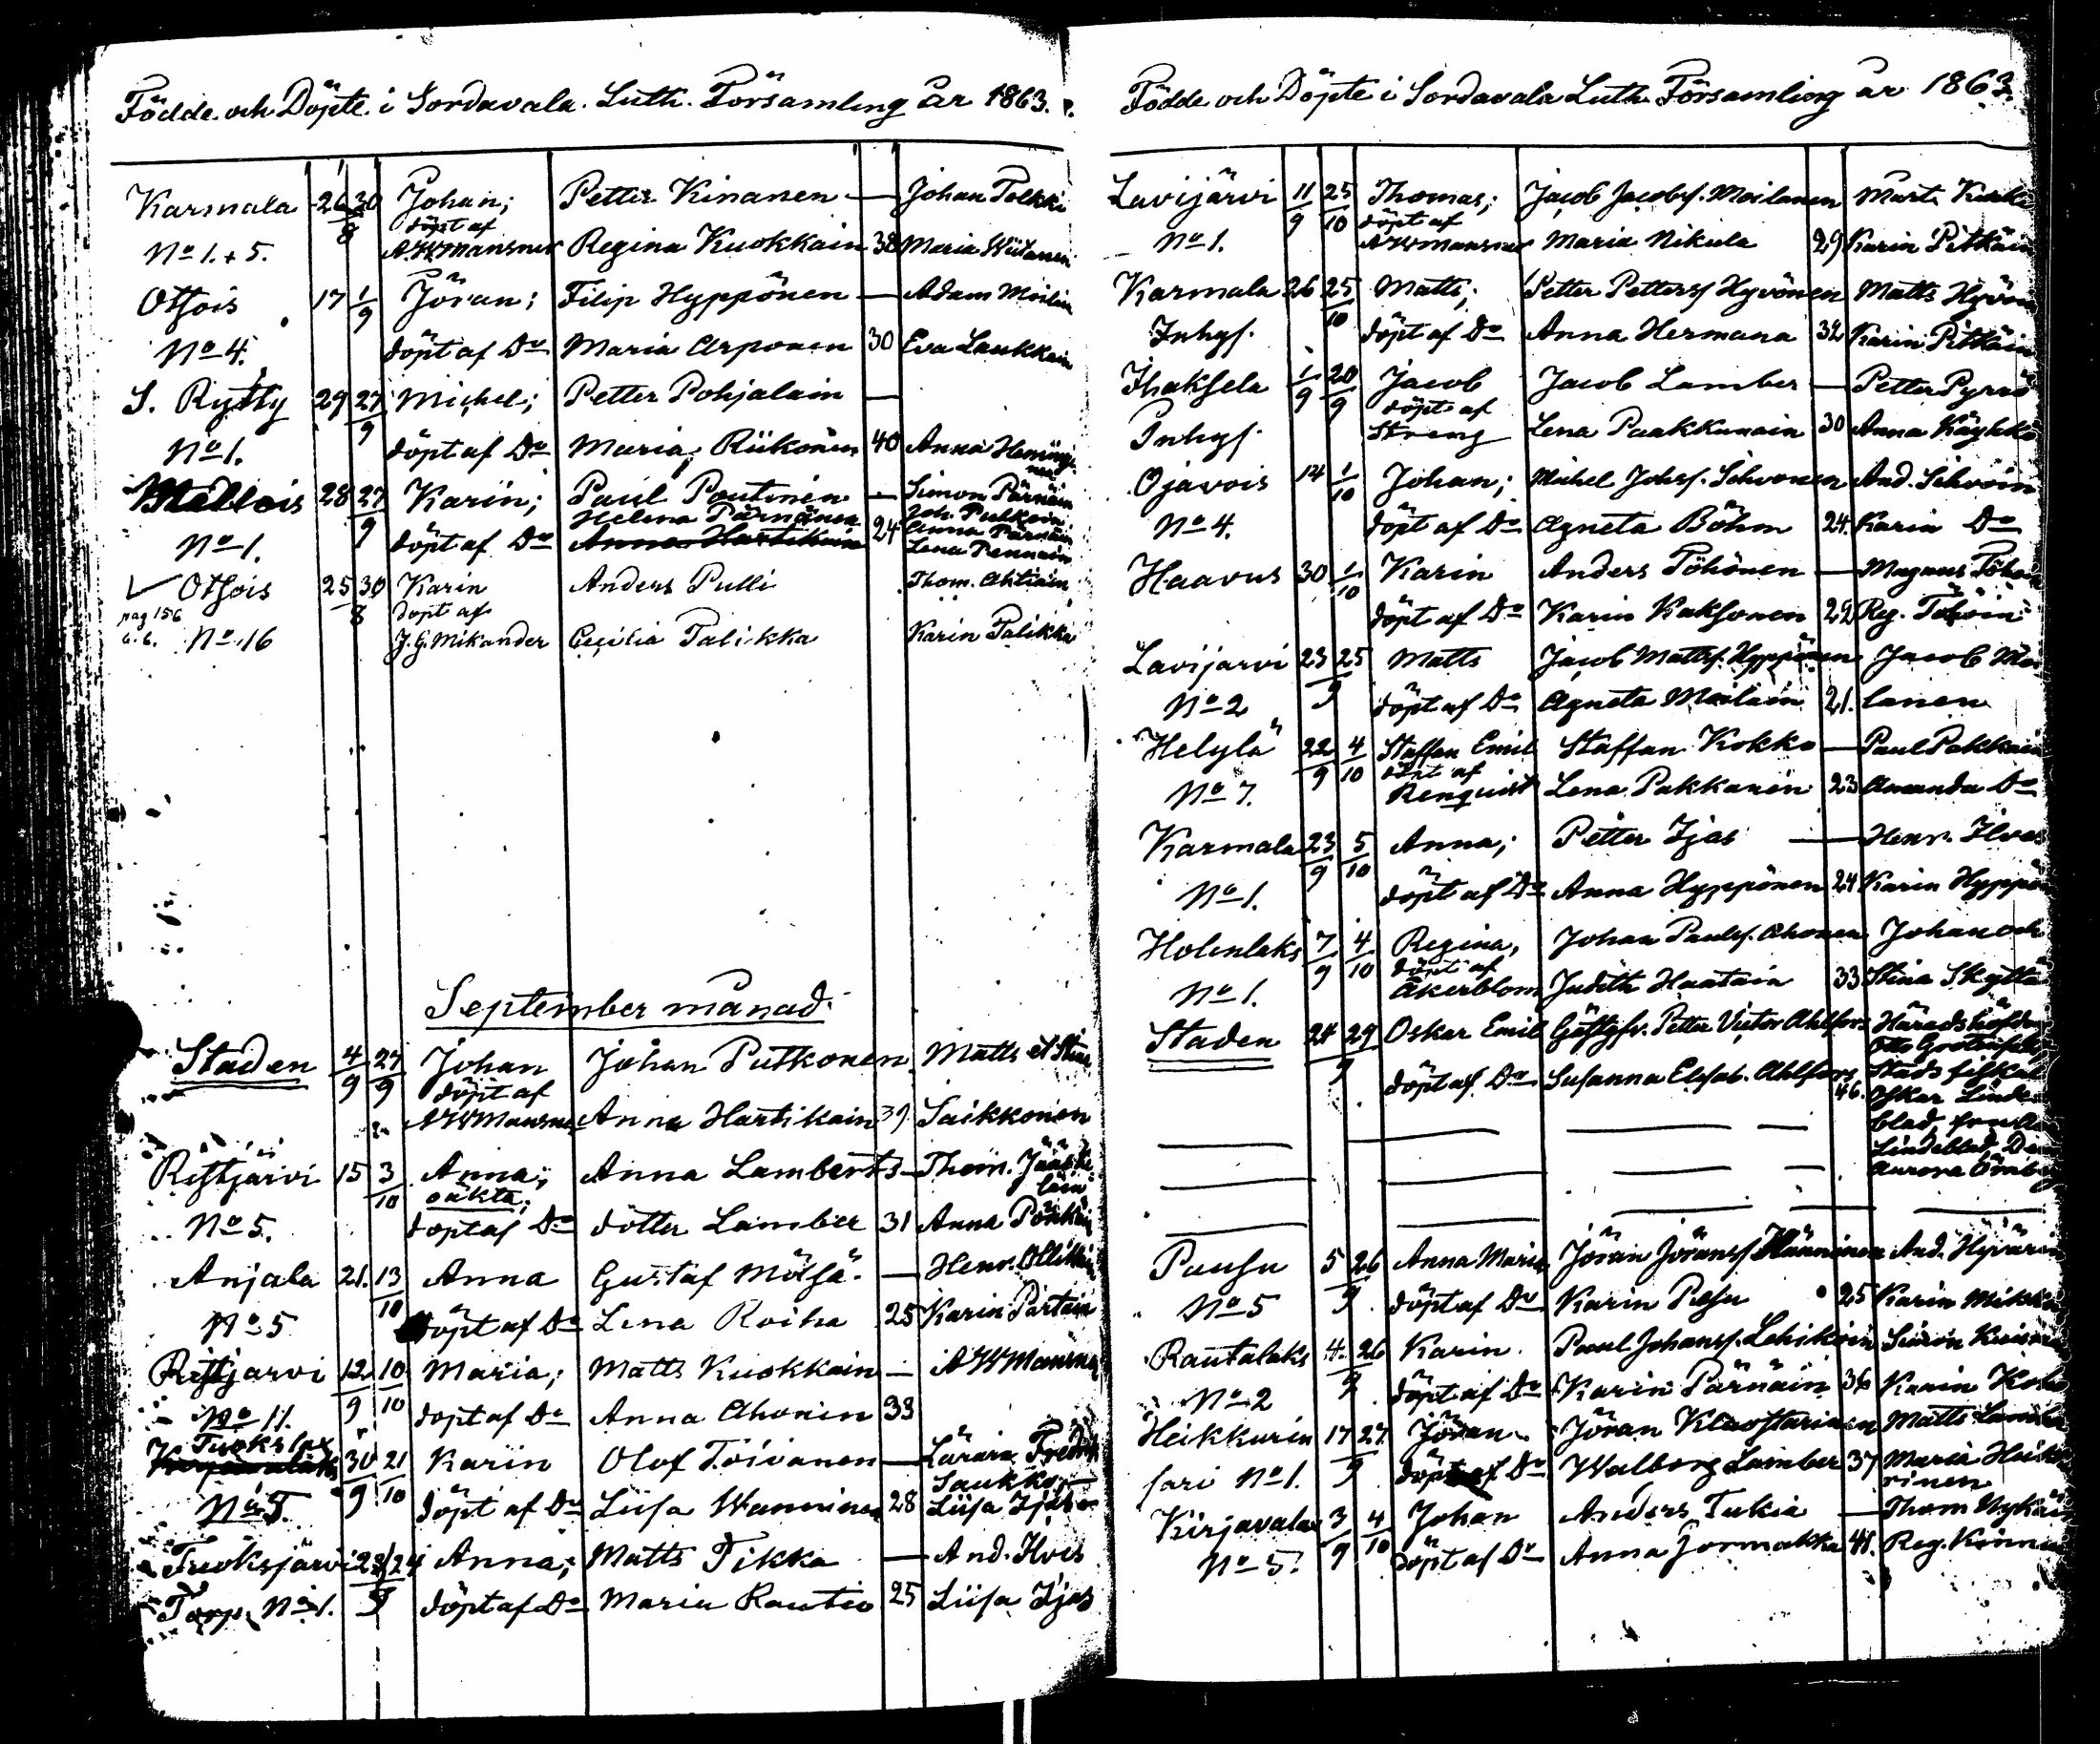 Födde och Döpte i Sordavala Luth. Församling År 1863.
Karmala 26 30/8 Johan; Petter Kinanen — Johan Tolkki
döpt af
No 1. + 5. A.W. Mansner Regina Kuokkain 38 Maria Wiitanen
Otsois 17 1/9 Jöran; Filip Hyppönen — Adam
No 4. döpt af Do Maria Arponen 30 Eva Laukkain
S. Rytty 29 27/9 Michel; Petter Pohjalain —
No 1. döpt af Do Maria Riikonen 40 Anna
28 27/9 Karin; Paul Poutinen — Simon Pärnäin
Helena Pärnänen Joh.
No 1. döpt af Do Anna Hartikain 24 Anna Pärnäin
Lena
Otsois 25 30/8 Karin Anders Pulli Thom. Ahtiain
pag 156 döpt af
No 16 J.G. Mikander Cecilia Talikka Karin Talikka
September månad.
Staden 4/9 27/9 Johan Johan Putkonen Matts et Stina
döpt af
A W Mansner Anna Hartikain 39 Saikkonen
Ristjärvi 15 3/10 Anna; Anna Lamberts— Thom. Jääske
oäkta; läin
No 5. döpt af Do dotter Lamber 31 Anna Pönkäin
Anjala 21. 13/10 Anna Gustaf Mölsä — Henr. Ollikain
No 5 döpt af Do Lena Roiha 25 Karin Partain
Ristjarvi 12/9 10/10 Maria; Matts Kuokkain — A W Mansner
No 11. döpt af Do Anna Ahonin 33
Tuokslax
30/9 21/10 Karin Olof Toivanen — Läraren Fredrik
Saukko
No 5. döpt af Do Liisa Wanninen 28 Liisa Ijäs
Tuoksjärvi 28 24/9 Anna; Matts Tikka — And. Ilves
Torp. No 1. döpt af Do Maria Rautio 25 Liisa Ijas
Födde och Döpte i Sordavala Luth. Församling år 1863.
Lavijärvi 11/9 25/10 Thomas; Jacob Jacobs. Moilanen Mart.
döpt af
No 1. A W Mansner Maria Nikula 29 Karin Pitkäin
Karmala 26 25/10 Matts; Petter Petters Hyvönen Matts Hyvön
Inhys. döpt af Do Anna Hermana 32 Karin Pitkäin
Ihaksela 1/9 20/9 Jacob Jacob Lamber — Petter Pyrrö
döpt af
Inhys. Streng Lena Paakkunain 30 Anna Käyhkö
Ojavois 14 1/10 Johan; Michel Johs. Sihvonen And. Sihvoin
No 4. döpt af Do Agneta Böhm 24. Karin Do
Haavus 30 1/10 Karin Anders Töhönen — Magnus Töhöin
döpt af Do Karin Kaksonen 22 Reg. Töhöin
Lavijarvi 23 25/9 Matts Jacob Matts. Hyppönen Jacob Moi
No 2 döpt af Do Agneta Moilain 21. lanen
Helylä 22/9 4/10 Staffan Emil Staffan Kokko — Paul Pakkain
döpt af
No 7. Renquist Lena Pakkanen 23 Amanda Do
Karmala 23/9 5/10 Anna; Petter Ijas — Henr. Ilves
No 1. döpt af Do Anna Hyppönen 24 Karin Hyppön
Holenlaks 7/9 4/10 Regina, Johan Pauls. Ahonen Johan och
döpt af
No 1. Åkerblom Judith Haatain 33 Stina Skyttä
Staden 24 29/9 Oskar Emil Gästgfv. Petter Victor Ahlfors Häradshöfd.
Otto Grotenfelt,
döpt af Do Susanna Elisab. Ahlfors 46. Stads fiskal
Oskar Linde
blad, fru
Lindeblad,
Aurora
Pausu 5 26/9 Anna Maria Jöran Jörans. Hänninen And. Hyvärin
No 5 döpt af Do Karin Pesu 25 Karin Mikka
Rautalaks 4. 26/9 Karin Paul Johans. Lehikoin Simon
No 2 döpt af Do Karin Pärnäin 36 Karin
Heikkurin 17 27/9 Jöran Jöran Matts Lamber
sari No 1. döpt af Do Walborg Lamber 37 Maria Heikku
rinen
Kirjavalax 3/9 4/10 Johan Anders Tukia — Thom Nykäin
No 5. döpt af Do Anna Jormakka 41. Reg. Kinnu